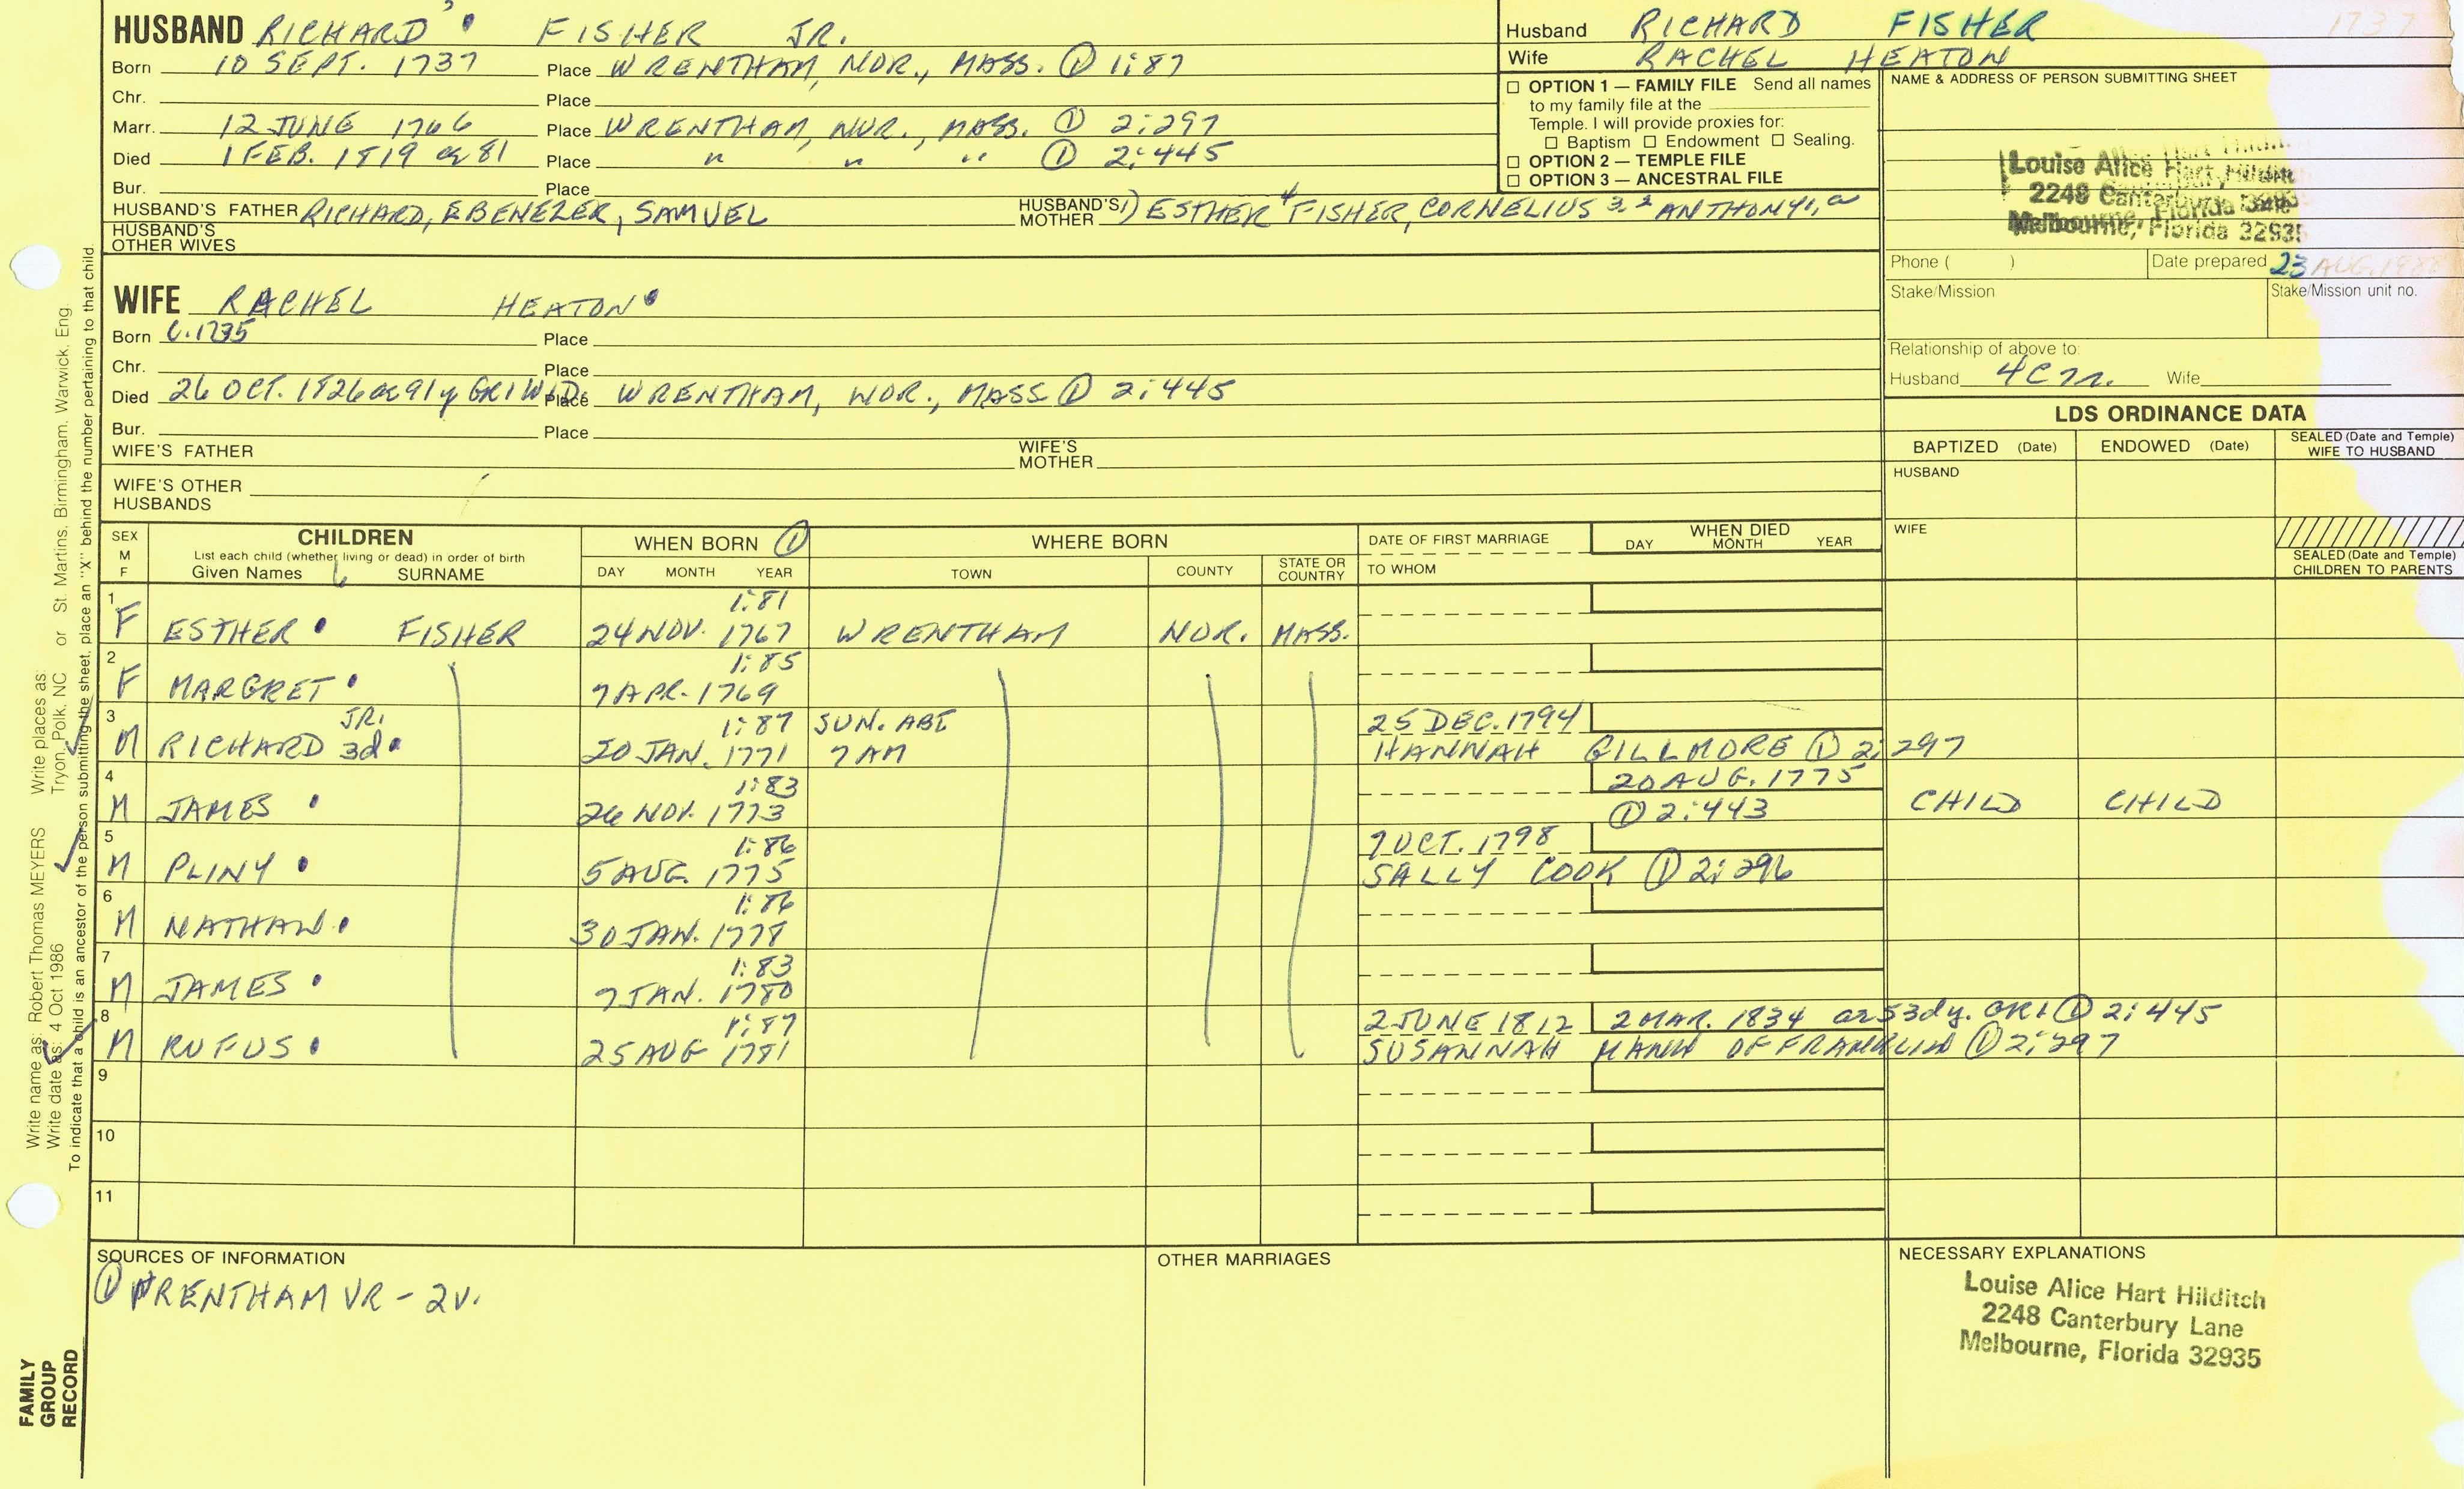 HUSBAND RICHARD FISHER JR.
Born 10 SEPT. 1737 Place WRENTHAM, NOR., MASS. ① 1:87
Chr. Place
Marr. 12 JUNE 1766 Place WRENTHAM, NOR., MASS. ① 2:297
Died 1 FEB. 1819 ae 81 Place " " " ① 2:445
Bur. Place
HUSBAND'S FATHER RICHARD, EBENEZER, SAMUEL HUSBAND'S MOTHER 1) ESTHER 4 FISHER, CORNELIUS 3, 2 ANTHONY 1,
HUSBAND'S OTHER WIVES
Husband RICHARD FISHER 1737
Wife RACHEL HEATON
☐ OPTION 1 — FAMILY FILE Send all names
to my family file at the
Temple. I will provide proxies for:
☐ Baptism ☐ Endowment ☐ Sealing.
☐ OPTION 2 — TEMPLE FILE
☐ OPTION 3 — ANCESTRAL FILE
NAME & ADDRESS OF PERSON SUBMITTING SHEET
Louise Alice Hart Hilditch
2248 Canterbury Lane
Melbourne, Florida 32935
Phone ( ) Date prepared 23 AUG.
Stake/Mission Stake/Mission unit no.
Relationship of above to:
Husband 4C Wife
WIFE RACHEL HEATON
Born C.1735 Place
Chr. Place
Died 26 OCT. 1826 ae 91y GR1 WID. Place WRENTHAM, NOR., MASS ① 2:445
Bur. Place
WIFE'S FATHER WIFE'S MOTHER
WIFE'S OTHER HUSBANDS
LDS ORDINANCE DATA
BAPTIZED (Date) ENDOWED (Date) SEALED (Date and Temple) WIFE TO HUSBAND
HUSBAND
WIFE
SEALED (Date and Temple) CHILDREN TO PARENTS
SEX M F
CHILDREN
List each child (whether living or dead) in order of birth
Given Names SURNAME
WHEN BORN ①
DAY MONTH YEAR
WHERE BORN
TOWN COUNTY STATE OR COUNTRY
DATE OF FIRST MARRIAGE
TO WHOM
WHEN DIED
DAY MONTH YEAR
1 1:81
F ESTHER FISHER 24 NOV. 1767 WRENTHAM NOR. MASS.
2 1:85
F MARGRET 7 APR. 1769
3 JR. 1:87 SUN. ABT 25 DEC. 1794
M RICHARD 3d 20 JAN. 1771 7 AM HANNAH GILLMORE ① 2:297
4 1:83 20 AUG. 1775
M JAMES 26 NOV. 1773 ① 2:443 CHILD CHILD
5 1:86 7 OCT. 1798
M PLINY 5 AUG. 1775 SALLY COOK ① 2:296
6 1:86
M NATHAN 30 JAN. 1778
7 1:83
M JAMES 7 JAN. 1780
8 1:87 2 JUNE 1812 2 MAR. 1834 ae 53dy. GR1 ① 2:445
M RUFUS 25 AUG 1781 SUSANNAH MANN OF FRANKLIN ① 2:297
9
10
11
SOURCES OF INFORMATION
① WRENTHAM VR - 2V.
OTHER MARRIAGES
NECESSARY EXPLANATIONS
Louise Alice Hart Hilditch
2248 Canterbury Lane
Melbourne, Florida 32935
Write name as: Robert Thomas MEYERS Write places as:
Write date as: 4 Oct 1986 Tryon, Polk, NC or St. Martins, Birmingham, Warwick, Eng.
To indicate that a child is an ancestor of the person submitting the sheet, place an "X" behind the number pertaining to that child.
FAMILY
GROUP
RECORD